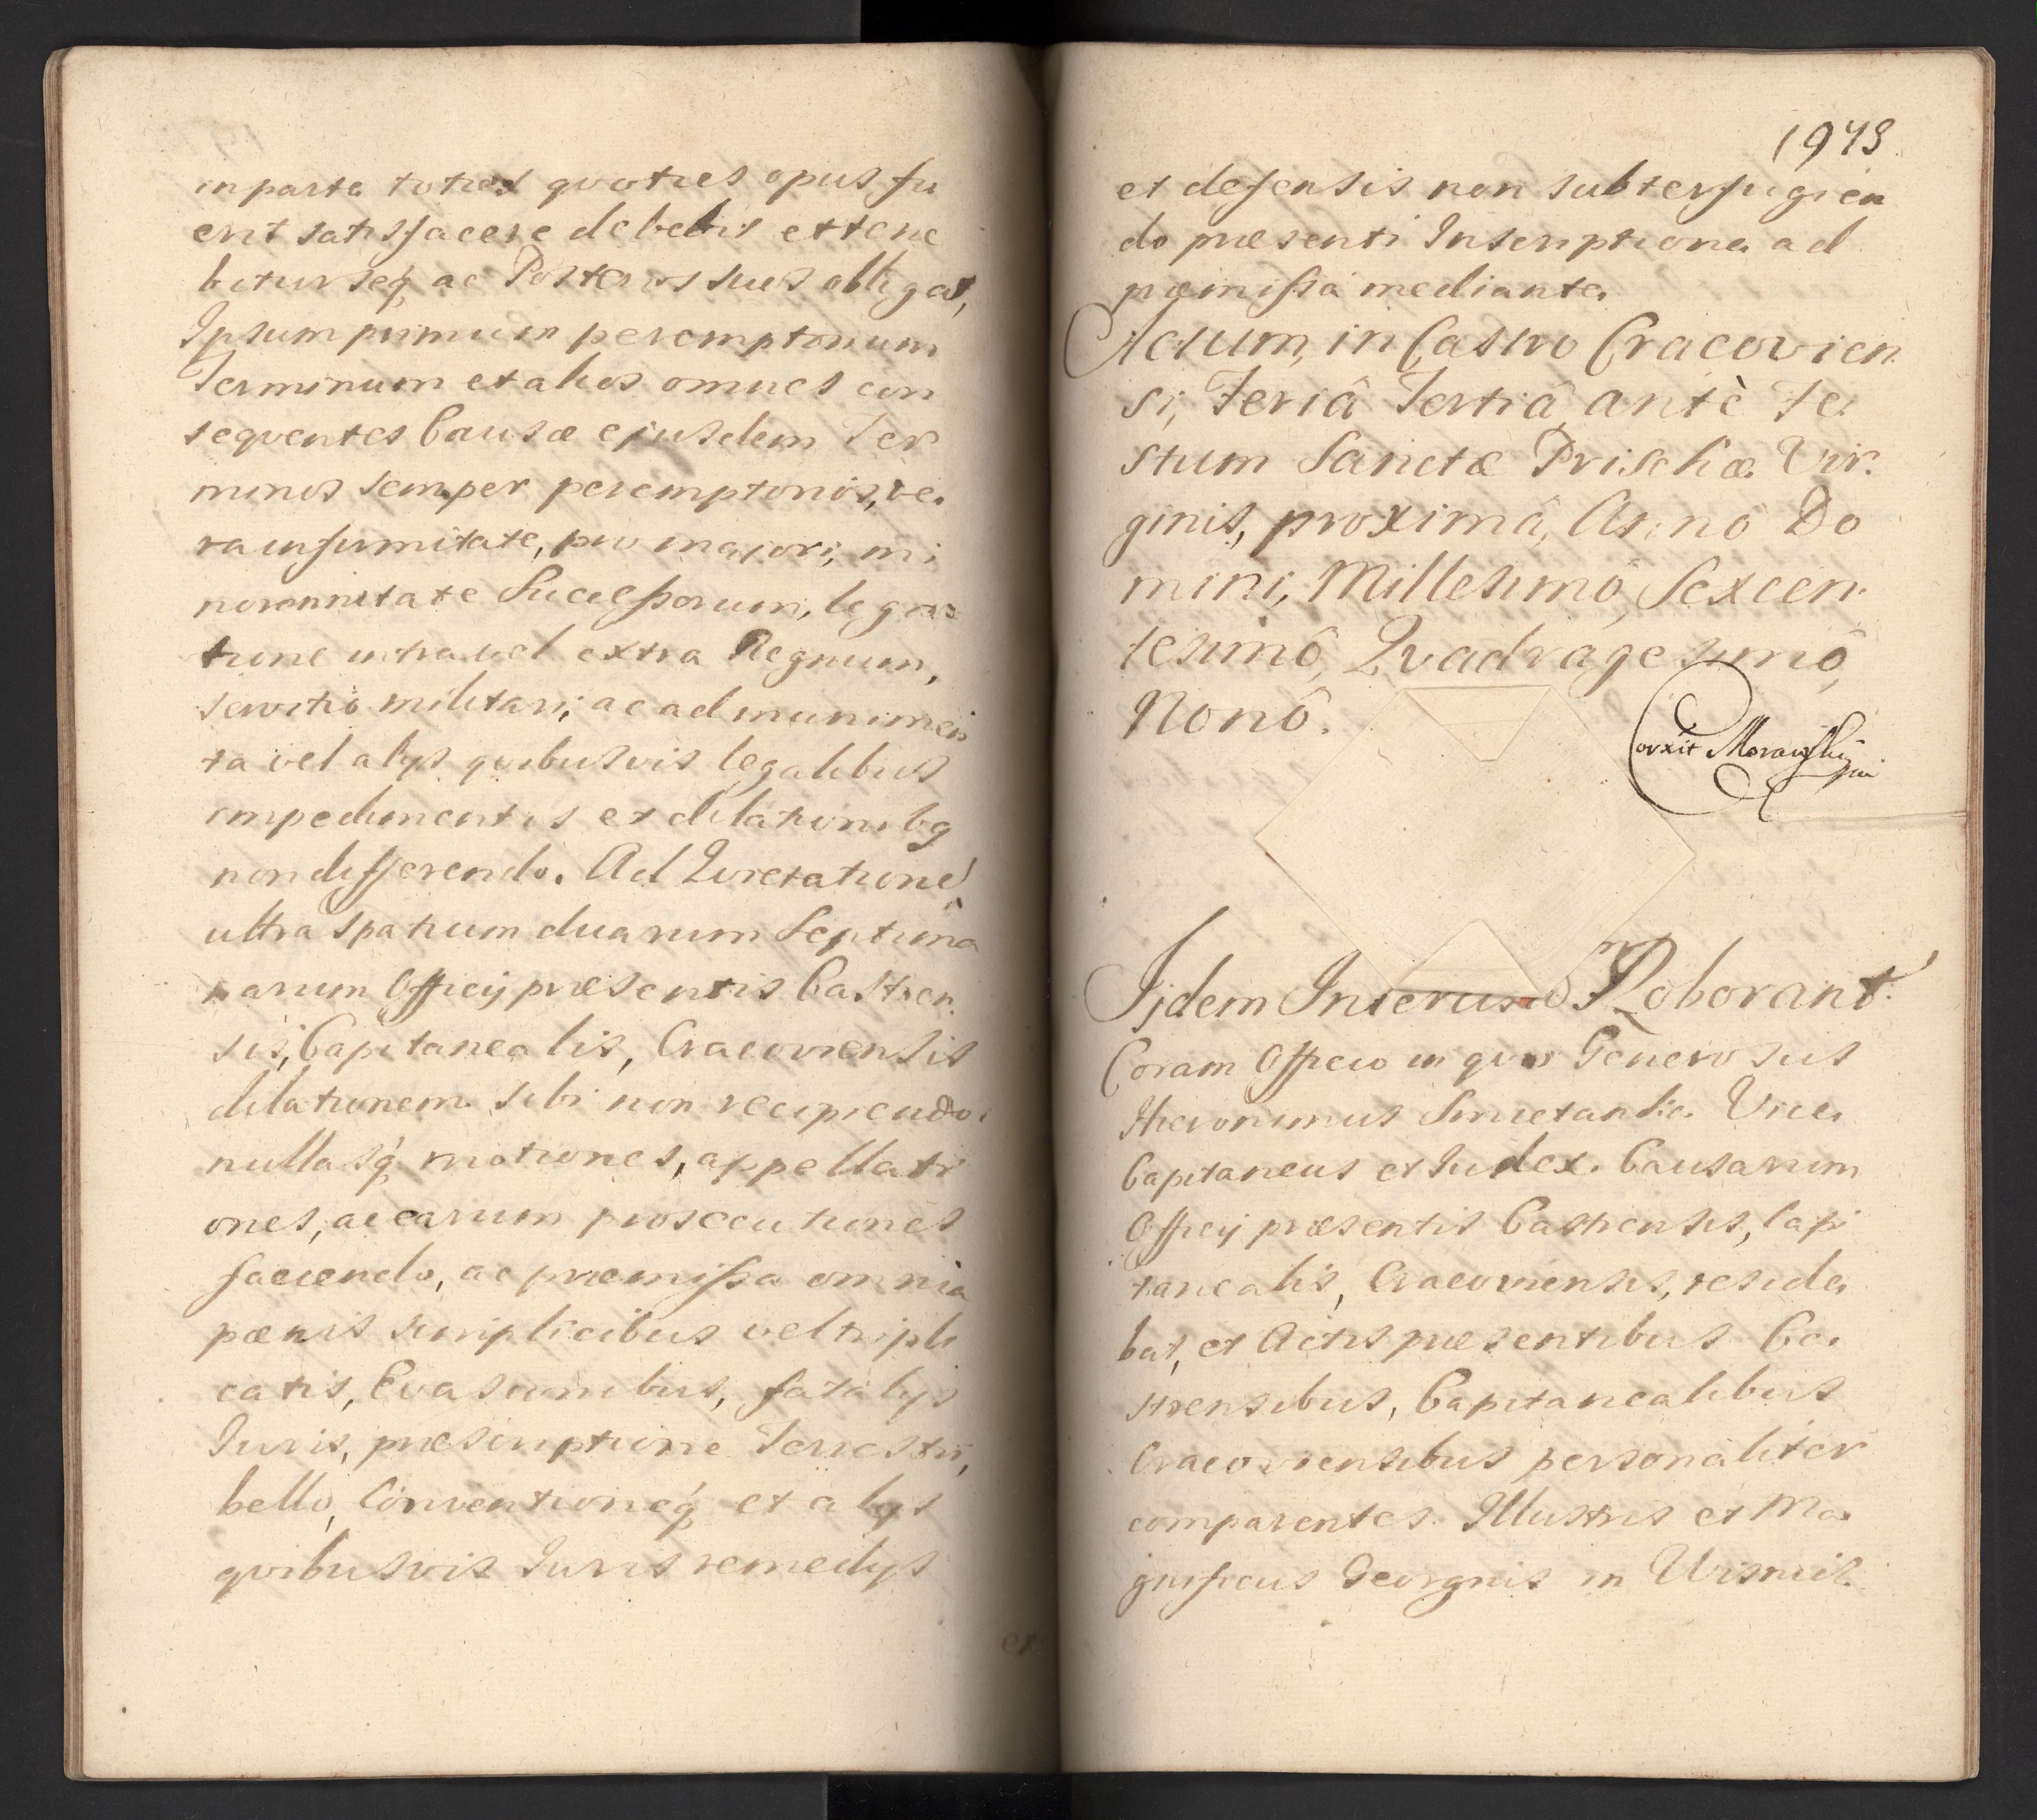 in parte toties quoties opus fu
erit satisfacere debebit et tene
bitur seq, ac Posteros suos obligat,
Ipsum primum peremptorium
Terminum et alios omnes con
sequentes Causæ ejusdem Ter
minos semper peremptorios, ve
ra infirmitate, pro majori, mi
norennitate Sucessorum, lega
tione intra vel extra Regnum,
servitio militari, ac ad munimen
ta vel alys qvibusvis legalibus
impedimentis et dilationibq
non differendo. Ad Qvietatione
ultra spatium duarum Septima
narum Officij præsentis Castren
sis, Capitanealis, Cracoviensis
dilationem sibi non recipiendo.
nullasq motiones, appellati
ones, ac earum prosecutiones
faciendo, ac præmissa omnia
pænis simplicibus vel tripli
catis, Evasionibus, fatalys
Juris, præscriptione Terrestri,
bello, Conventioneq et alys
qvibusvis Juris remedys
et
1943
et defensis non subterfugien
do præsenti Inscriptione ad
præmissa mediante
Actum, in Castro Cracovien
si, Feriâ Tertiâ, antè Fe
stum Sanctæ Prischæ Vir
ginis, proximâ, Annô Do
mini, Millesimô, Sexcen
tesimô, Qvadragesimô,
Nonô.
Corxit Morawski
mp
Ijdem Inscrip Roborant.
Coram Officio in qvo Generosus
Hieronimus Smietanka Vice
Capitaneus et Judex Causarum
Officij præsentis Castrensis, Capi
tanealis, Cracoviensis, reside
bat, et Actis præsentibus Ca
strensibus, Capitanealibus
Cracoviensibus personaliter
comparentes. Illustris et Ma
gnificus Georgius in Wisnic